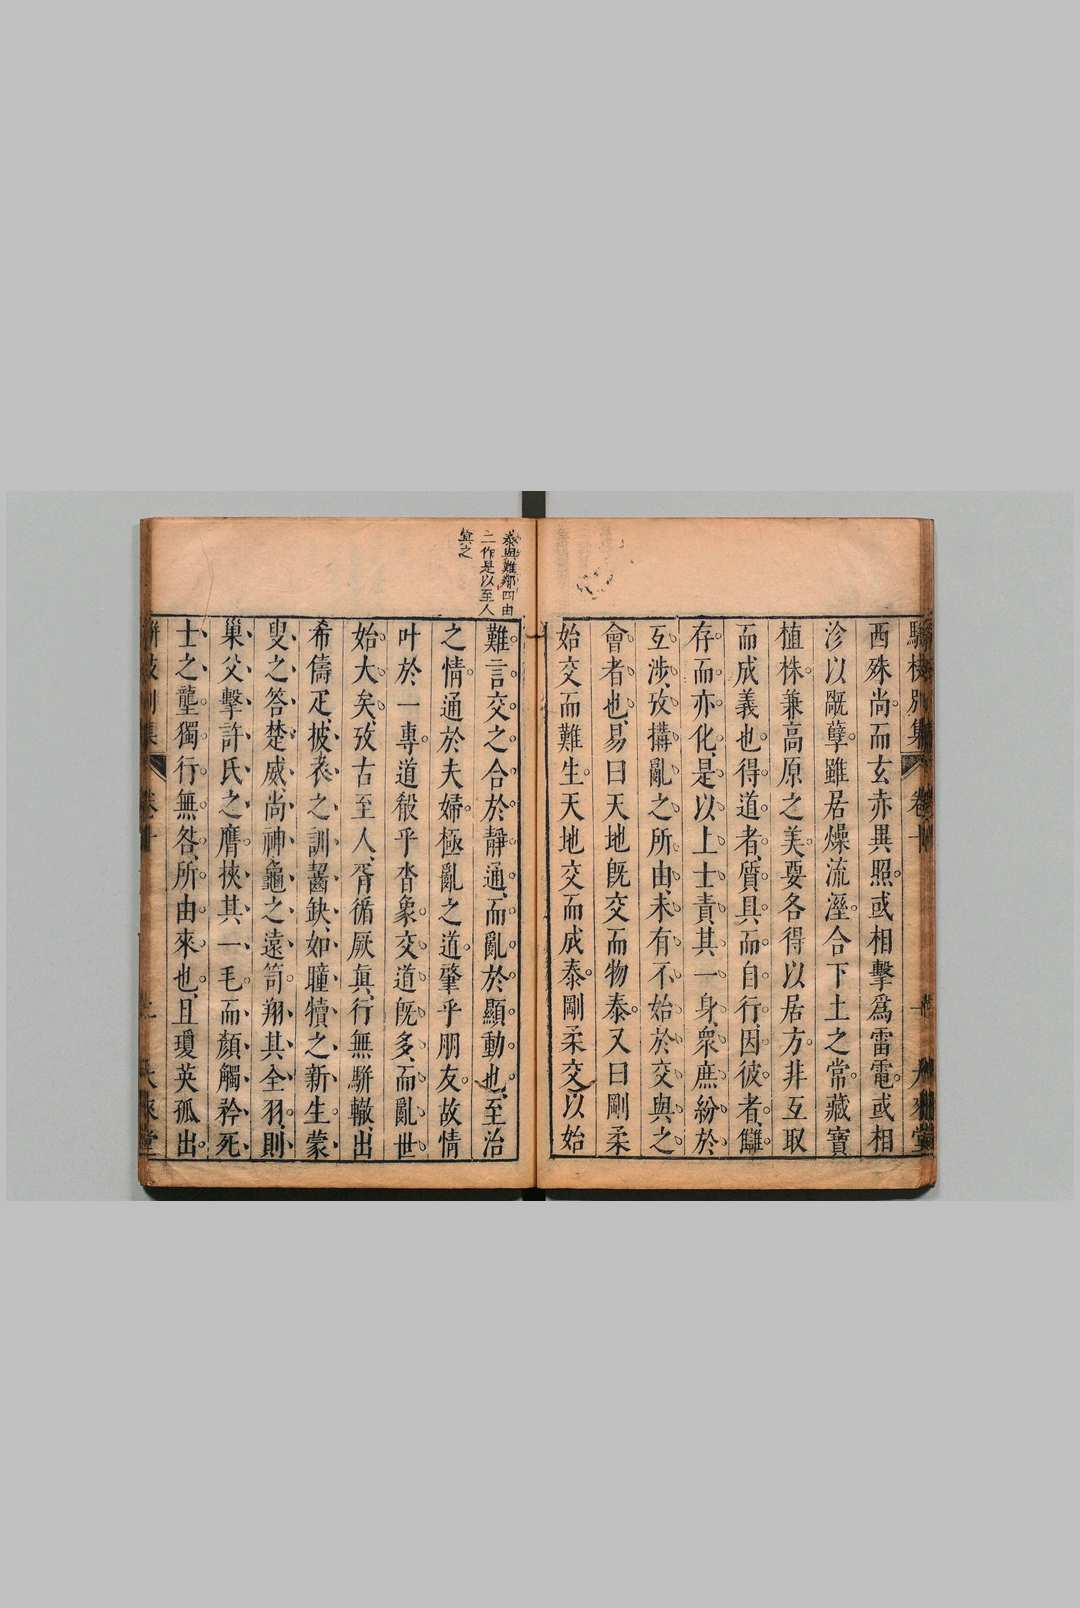 駢枝別集 卷十
西殊尚而玄赤異照或相擊爲雷電或相
沴以戬孽雖居燥流溼合下土之常藏寶
植株兼高原之美要各得以居方非互取
而成義也得道者質具而自行因彼者讎
存而亦化是以上士責其一身衆庶紛於
互涉攷搆亂之所由未有不始於交與之
會者也易曰天地旣交而物泰又曰剛柔
始交而難生天地交而成泰剛柔交以始
泰與難鄰四由
二作是以至人
難言交之合於靜通而亂於顯動也至治
之情通於夫婦極亂之道肇乎朋友故情
叶於一專道殽乎沓象交道旣多而亂世
始大矣攷古至人胥循厥眞行無駢轍出
希儔疋披衣之訓齧缺如瞳犢之新生蒙
叟之答楚威尚神龜之遠笥翔其全羽則
巢父擊許氏之膺挾其一毛而顏觸矜死
士之壟獨行無咎所由來也且瓊英孤出